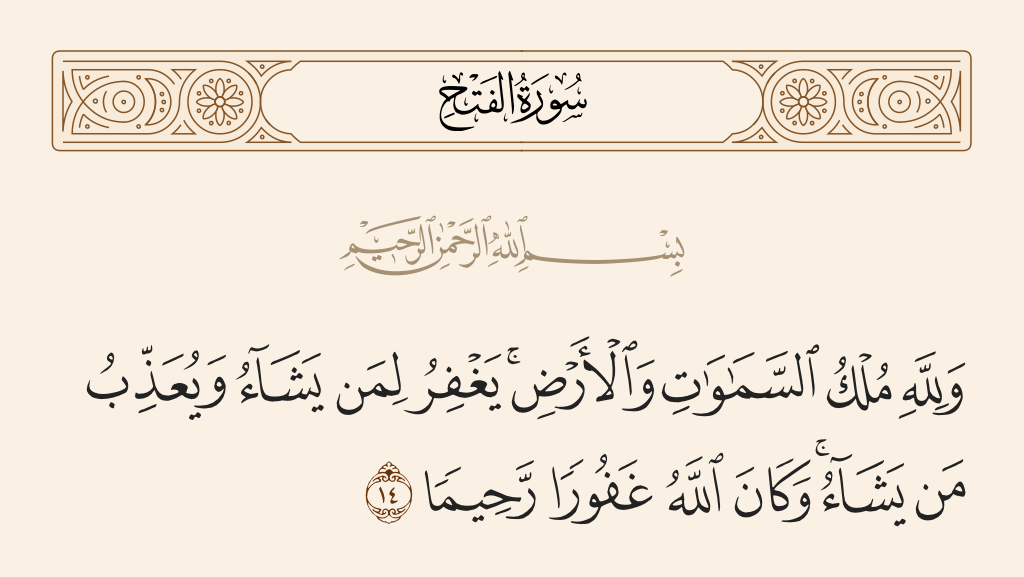 سُورَةُ الفَتۡحِ
بِسۡمِ ٱللَّهِ ٱلرَّحۡمَٰنِ ٱلرَّحِيمِ
وَلِلَّهِ مُلۡكُ ٱلسَّمَٰوَٰتِ وَٱلۡأَرۡضِۚ يَغۡفِرُ لِمَن يَشَآءُ وَيُعَذِّبُ
مَن يَشَآءُۚ وَكَانَ ٱللَّهُ غَفُورٗا رَّحِيمٗا ١٤